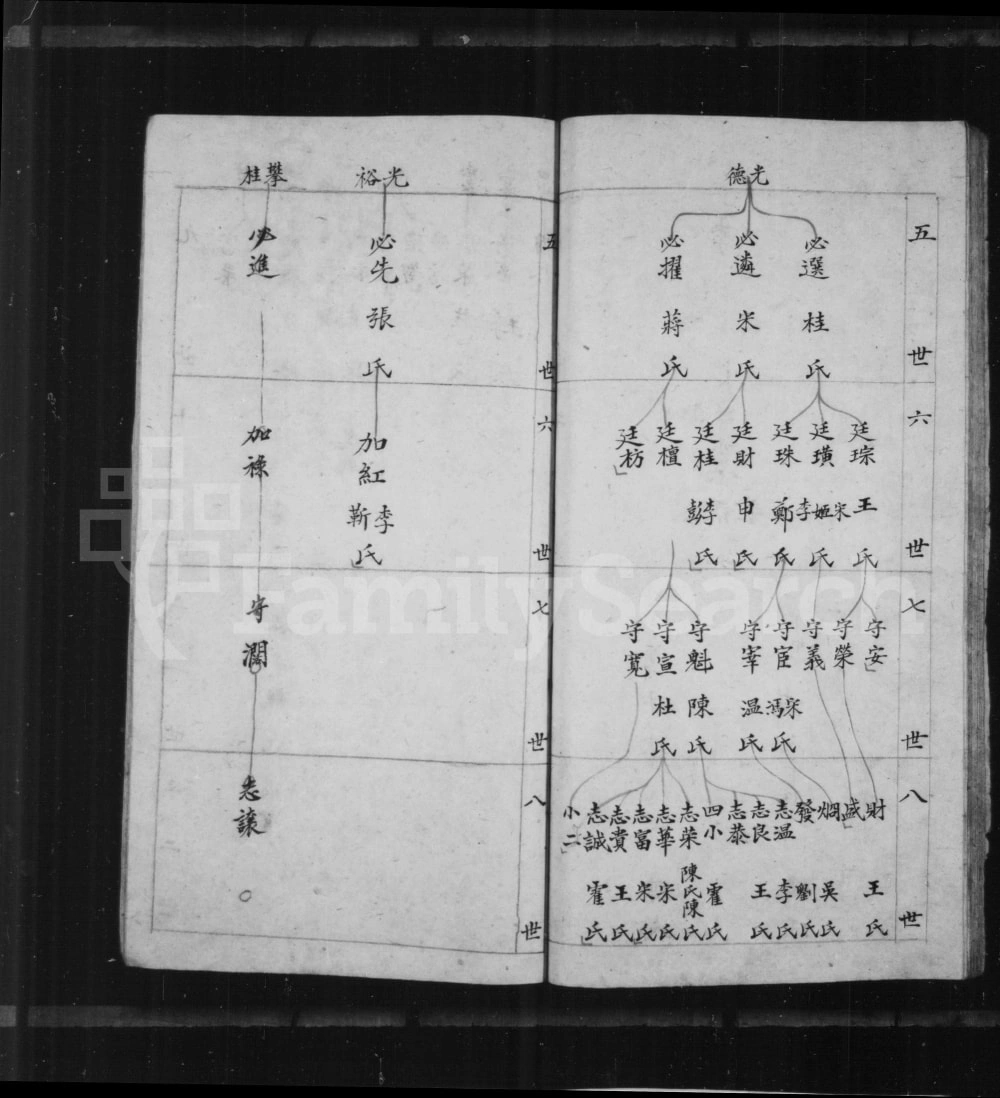 光德
五世
必選 桂氏
必遴 宋氏
必擢 蔣氏
六世
廷琮 王氏
廷璜 宋姬氏
廷珠 李鄭氏
廷財 申氏
廷桂 李彭氏
廷檀
廷枋
七世
守安
守榮
守義
守宦 宋馮氏
守宰 温氏
守魁 陳氏
守宣 杜氏
守寬
八世
財 王氏
盛
烱 吳氏
發 劉氏
志温 李氏
志良 王氏
志恭
四小 霍氏
志荣 陳氏陳氏
志華 宋氏
志富 宋氏
志貴 王氏
志誠 霍氏
小二
光裕
攀桂
五世
必先 張氏
必進
六世
加紅 李靳氏
加祿
七世
守瀾
八世
志讓
FamilySearch